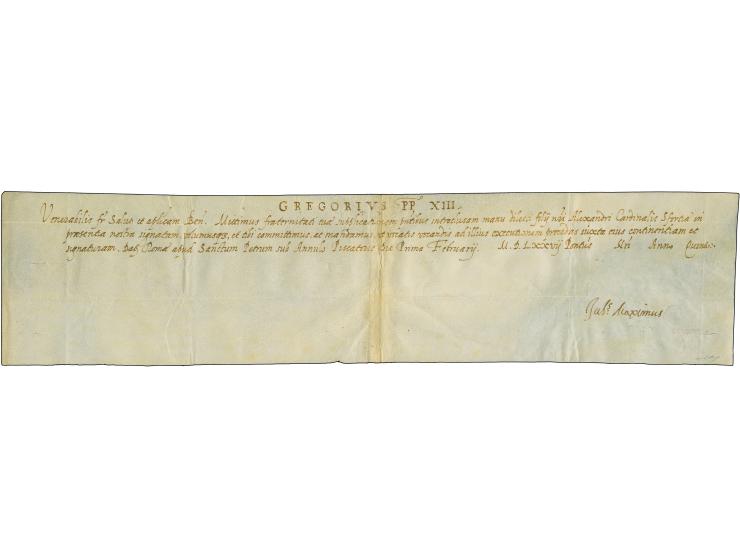 GREGORIVS PP XIII.
Venerabilis fr Salus et aplicam Ben. Mittimus fraternitati tuæ supplicationem pntibus introclusam manu dilecti filij nri Alexandri Cardinalis Sfortiæ in
præsentia nostra signatam, volumusqꝫ, et tibi committimus, ac mandamus, vt vocatis vocandis ad illius executionem procedas iuxta eius continentiam et
signaturam. Dat Romæ apud Sanctum Petrum sub Annulo Piscatoris die Prima Februarij. Pontus Nri Anno